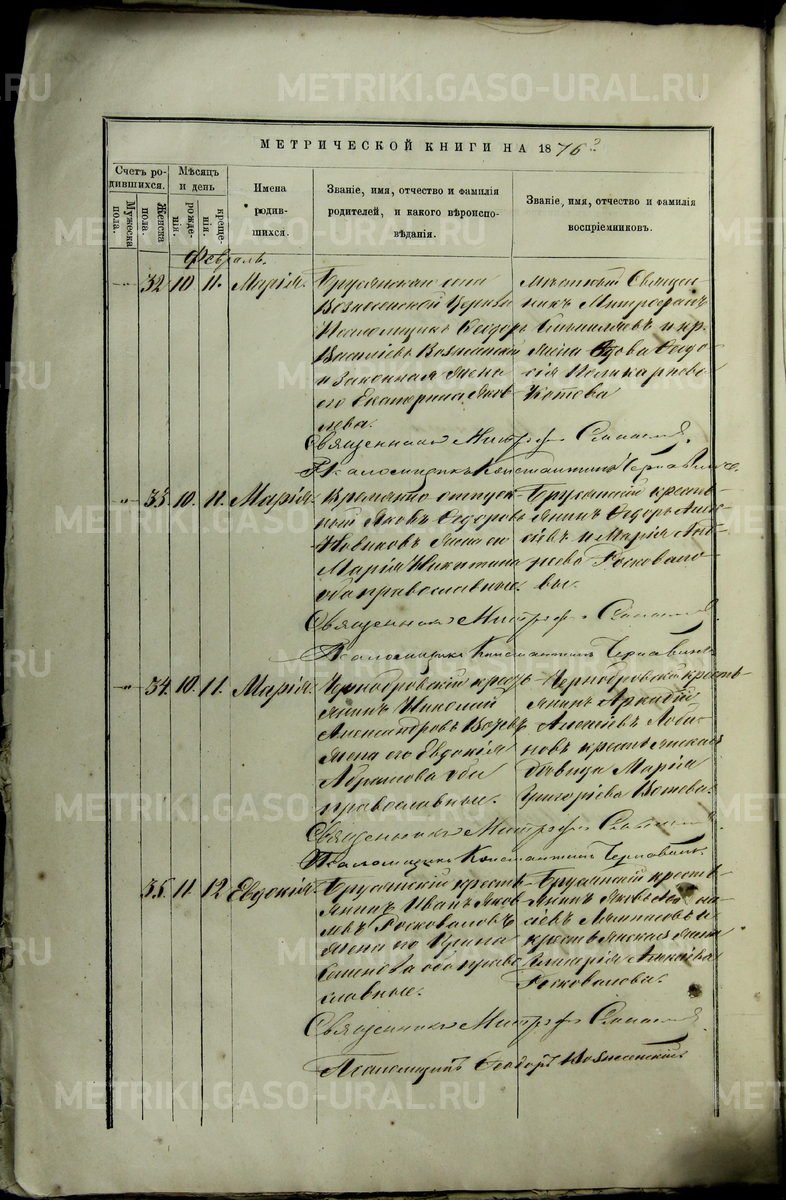 METRIKI.GASO-URAL.RU
МЕТРИЧЕСКОЙ КНИГИ НА 1876
Счетъ родившихся.
Мужеска пола.
Женска пола.
Мѣсяцъ и день
рожденія.
крещенія.
Имена родившихся.
Званіе, имя, отчество и фамилія родителей, и какого вѣроисповѣданія.
Званіе, имя, отчество и фамилія воспріемниковъ.
Февраль.
32 10 11. Марія.
Брусянскаго села
Вознесенской Церкви
Псаломщикъ Ѳеодоръ
Василіевъ Вознесенскій
и законная жена
его Екатерина Яков-
лева.
Мѣстный Священ-
никъ Митрофанъ
и кр.
жена вдова Ѳеодо-
сія Поликарпова
Котова
Священникъ Митроф.
Псаломщикъ Константинъ Чернавинъ.
33. 10. 11. Марія.
Временно отпуск-
ный Яковъ Ѳедоровъ
Новиковъ жена его
Марія Никитина
оба православные.
Брусянскій кресть-
янинъ Ѳедоръ Алек-
сѣевъ и Марія
Росковало-
вы.
Священникъ Митроф.
Псаломщикъ Константинъ Чернавинъ
34. 10. 11. Марія.
Чернобровскій кресть-
янинъ Николай
Александровъ
жена его Евдокія
Абрамова оба
православные.
Чернобровскій кресть-
янинъ Аркадій
Алексѣевъ Лоба-
новъ крестьянская
дѣвица Марія
Григоріева Котова.
Священникъ Митроф.
Псаломщикъ Константинъ Чернавинъ.
35. 11 12 Евдокія.
Брусянскій кресть-
янинъ Иванъ Яков-
левъ Росковаловъ
жена его Ирина
Семенова оба право-
славные.
Брусянскій кресть-
янинъ
и
крестьянская жена
Росковалова.
Священникъ Митроф.
Псаломщикъ Ѳеодоръ Вознесенскій